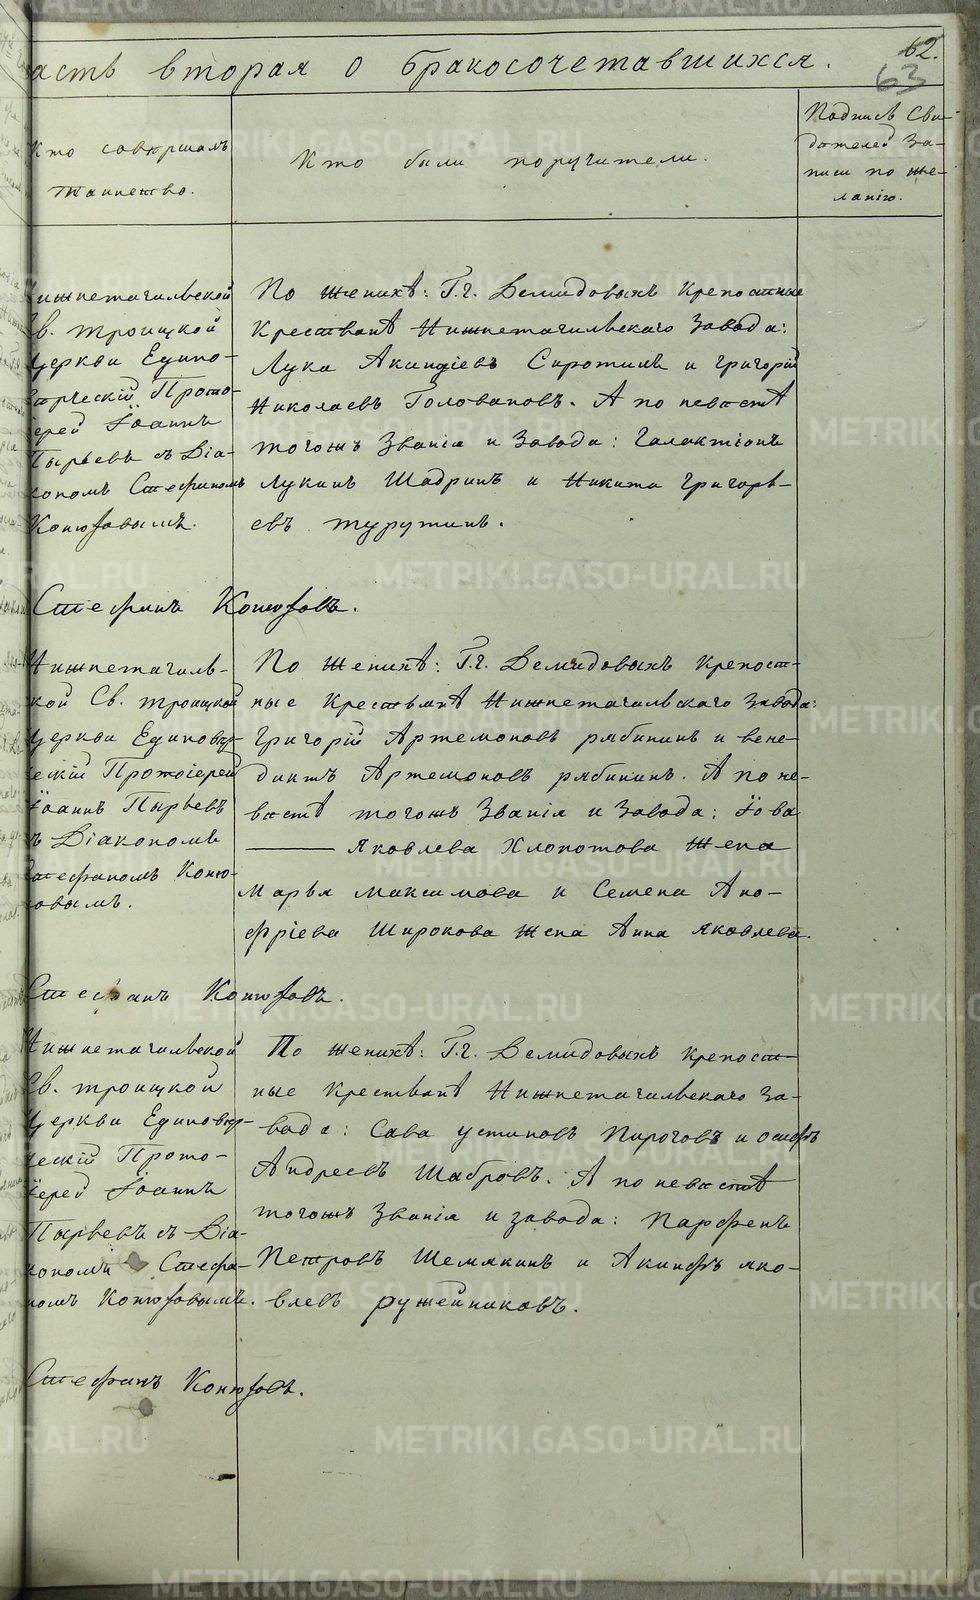 62.
63
асть вторая о бракосочетавшихся.
Кто совершалъ
таинство.
Кто были поручители.
Подпись Сви-
дѣтелей за-
писи по же-
ланію.
ижнетагильской
в. троицкой
церкви Едино-
ерческій Прото-
ерей Іоаннъ
Пырьевъ съ Діа-
кономъ Стефаномъ
Конюховымъ.
По женихѣ: Г.г. Демидовыхъ крепостные
Крестьянѣ Нижнетагильскаго завода:
Лука Акиндіевъ Сиротинъ и григорій
Николаевъ Головановъ. А по невѣстѣ
тогожъ званія и завода: Галактіонъ
Лукинъ Шадринъ и Никита григорь-
евъ турутинъ.
Стефанъ Конюховъ.
Нижнетагиль-
кой Св. троицкой
церкви Единовер-
ескій Протоіерей
Іоаннъ Пырьевъ
ъ Діакономъ
тефаномъ Коню-
овымъ.
По женихѣ: Г.г. Демидовыхъ крепост-
ные крестьянѣ Нижнетагильскаго завода:
григорій Артемоновъ рябининъ и вене-
диктъ Артемоновъ рябининъ. А по не-
вѣстѣ тогожъ званія и завода; Іова
Яковлева Хлопотова жена
Марья максимова и Семена Ано-
фріева Широкова жена Анна яковлева.
Стефанъ Конюховъ.
Нижнетагильской
Св. троицкой
церкви Единовер-
ческій Прото-
іерей Іоаннъ
Пырьевъ съ Діа-
кономъ Стефа-
номъ Конюховымъ.
По женихѣ: Г.г. Демидовыхъ крепост-
ные крестьянѣ Нижнетагильскаго за-
вода: Сава устиновъ Пироговъ и осипъ
Андреевъ Шабровъ. А по невѣстѣ
тогожъ званія и завода: парфенъ
Петровъ Шемякинъ и Акинфъ яко-
влевъ ружейниковъ.
Стефанъ Конюховъ.
METRIKI.GASO-URAL.RU